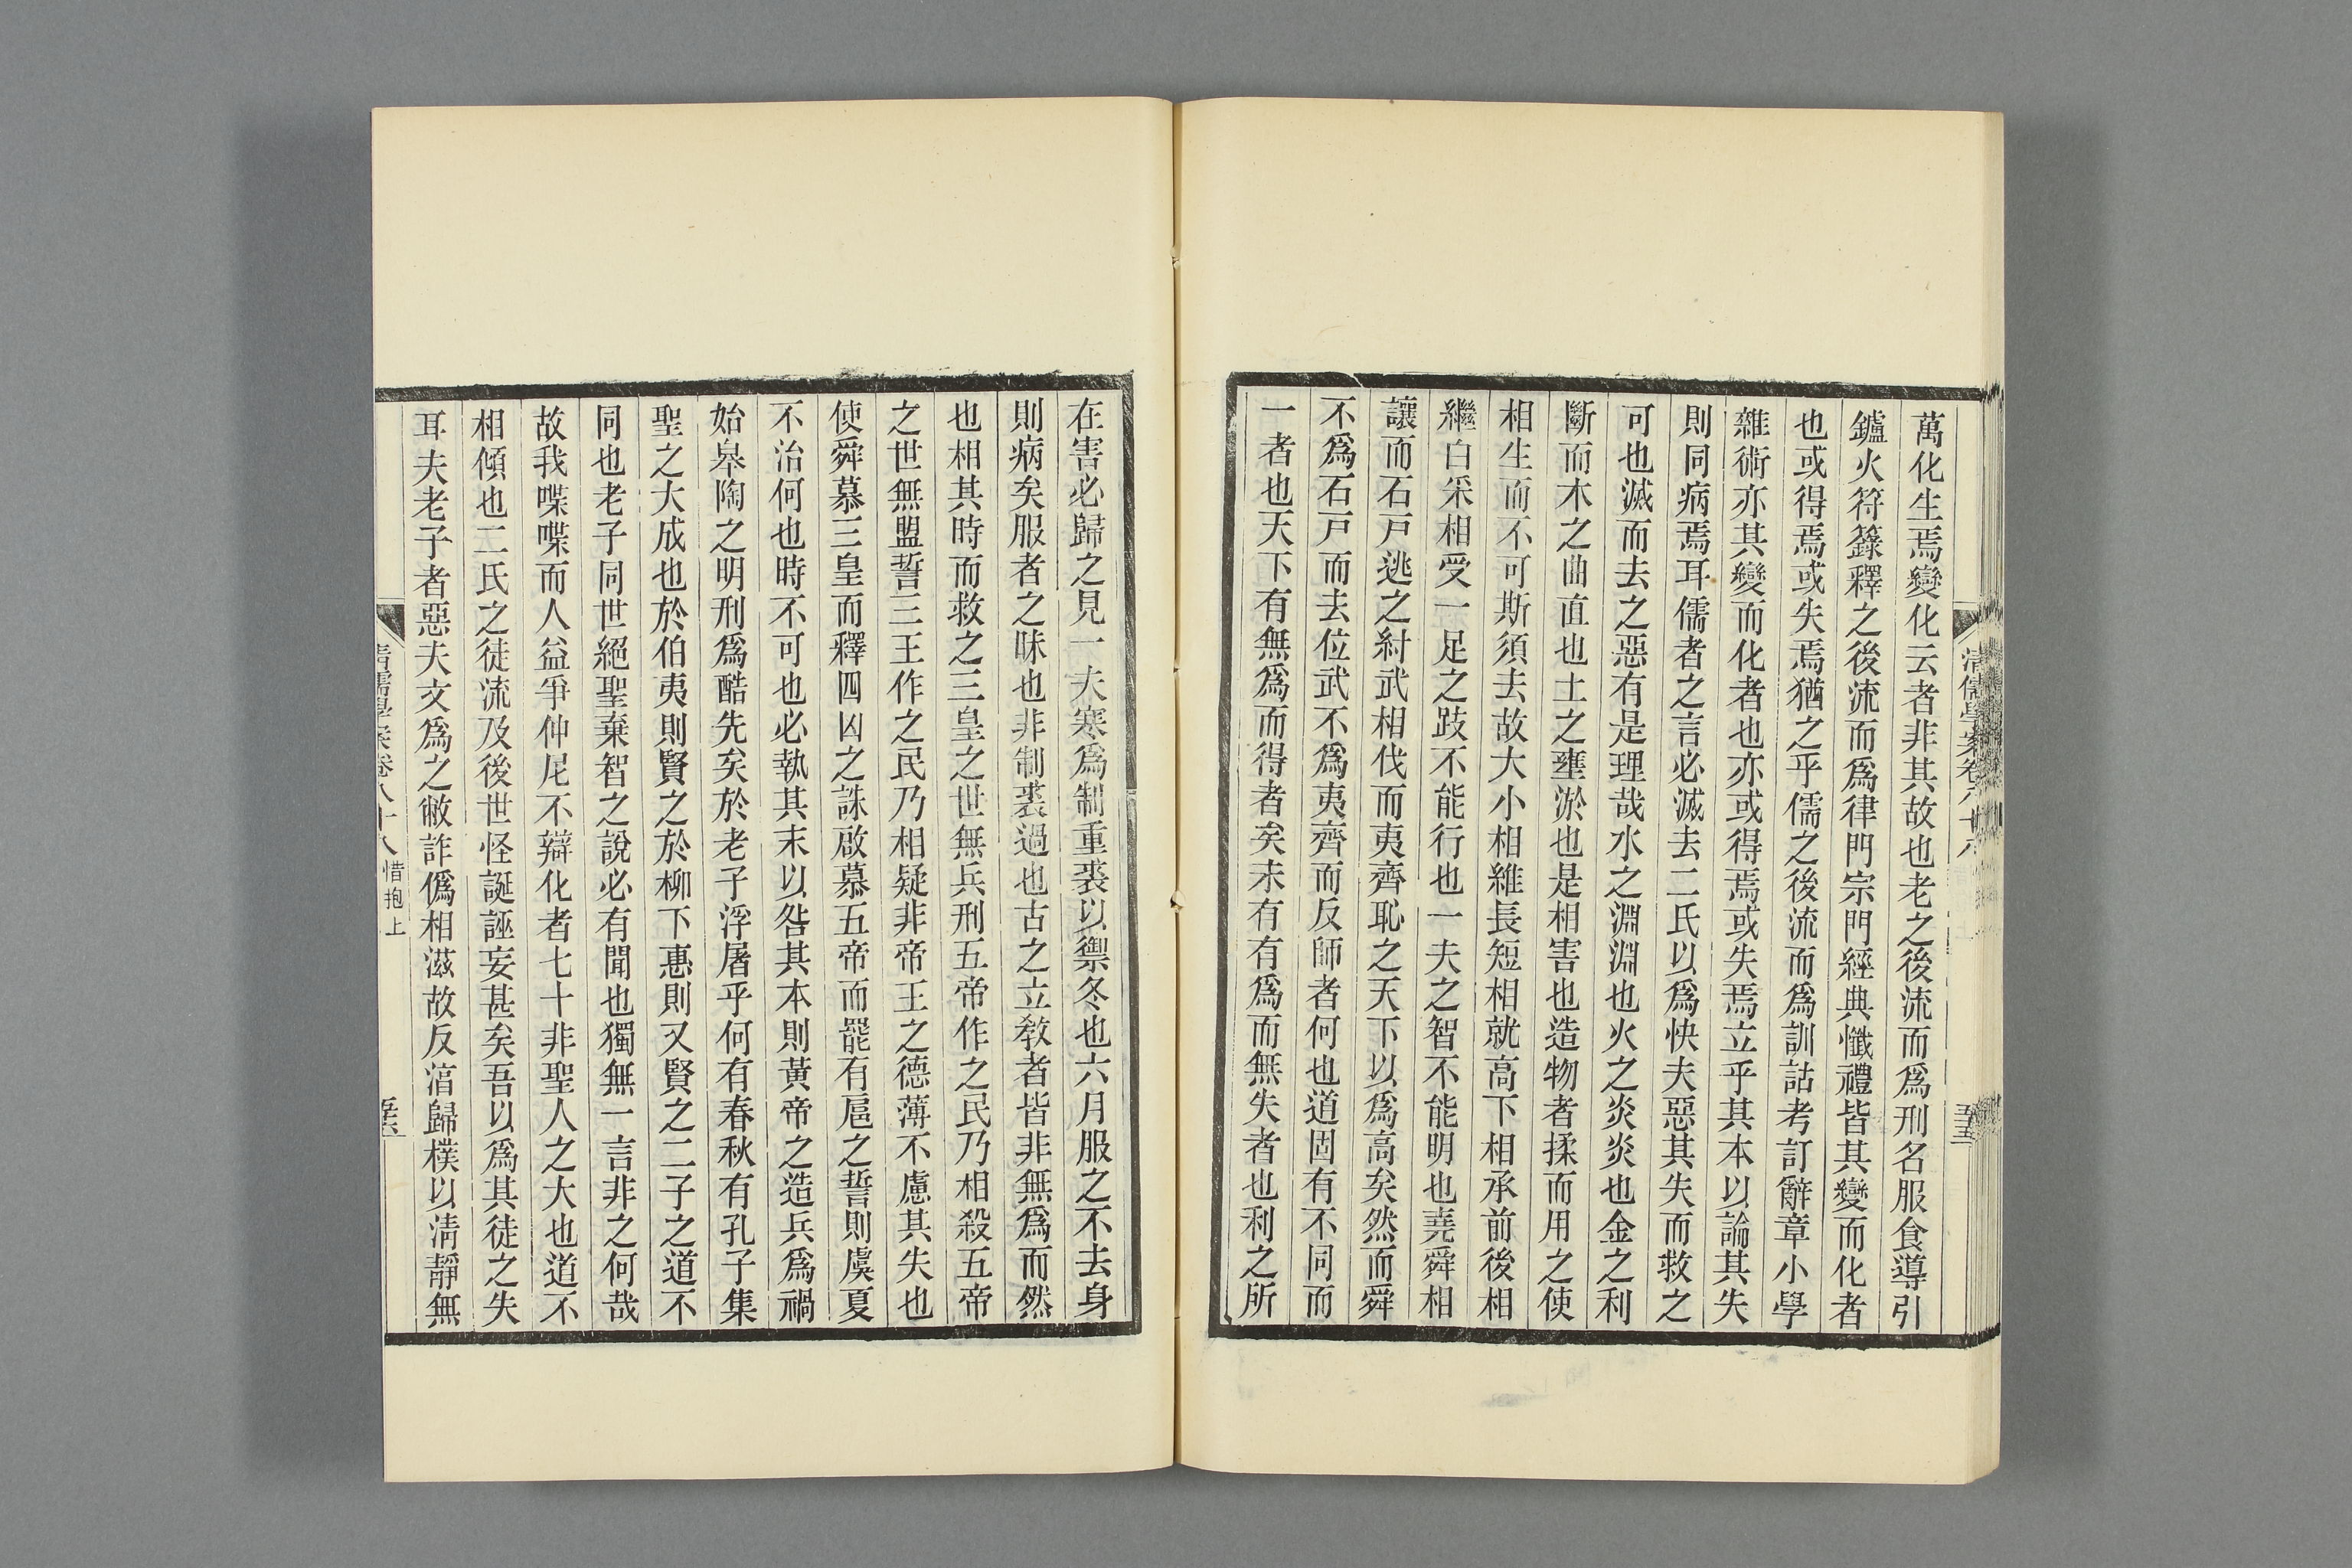 萬化生焉變化云者非其故也老之後流而爲刑名服食導引
鑪火符籙釋之後流而爲律門宗門經典懺禮皆其變而化者
也或得焉或失焉猶之乎儒之後流而爲訓詁考訂辭章小學
雜術亦其變而化者也亦或得焉或失焉立乎其本以論其失
則同病焉耳儒者之言必滅去二氏以爲快夫惡其失而救之
可也滅而去之惡有是理哉水之淵淵也火之炎炎也金之利
斷而木之曲直也土之壅淤也是相害也造物者揉而用之使
相生而不可斯須去故大小相維長短相就高下相承前後相
繼白采相受一足之跂不能行也一夫之智不能明也堯舜相
讓而石戸逃之紂武相伐而夷齊恥之天下以爲高矣然而舜
不爲石戸而去位武不爲夷齊而反師者何也道固有不同而
一者也天下有無爲而得者矣未有有爲而無失者也利之所
清儒學案卷八十八
五十五
在害必歸之見一夫寒爲制重裘以禦冬也六月服之不去身
則病矣服者之昧也非制裘過也古之立敎者皆非無爲而然
也相其時而救之三皇之世無兵刑五帝作之民乃相殺五帝
之世無盟誓三王作之民乃相疑非帝王之德薄不慮其失也
使舜慕三皇而釋四凶之誅啟慕五帝而罷有扈之誓則虞夏
不治何也時不可也必執其末以咎其本則黃帝之造兵爲禍
始皋陶之明刑爲酷先矣於老子浮屠乎何有春秋有孔子集
聖之大成也於伯夷則賢之於柳下惠則又賢之二子之道不
同也老子同世絕聖棄智之說必有聞也獨無一言非之何哉
故我喋喋而人益爭仲尼不辯化者七十非聖人之大也道不
相傾也二氏之徒流及後世怪誕誣妄甚矣吾以爲其徒之失
耳夫老子者惡夫文爲之敝詐僞相滋故反湻歸樸以淸靜無
清儒學案卷八十八 惜抱上
五十六